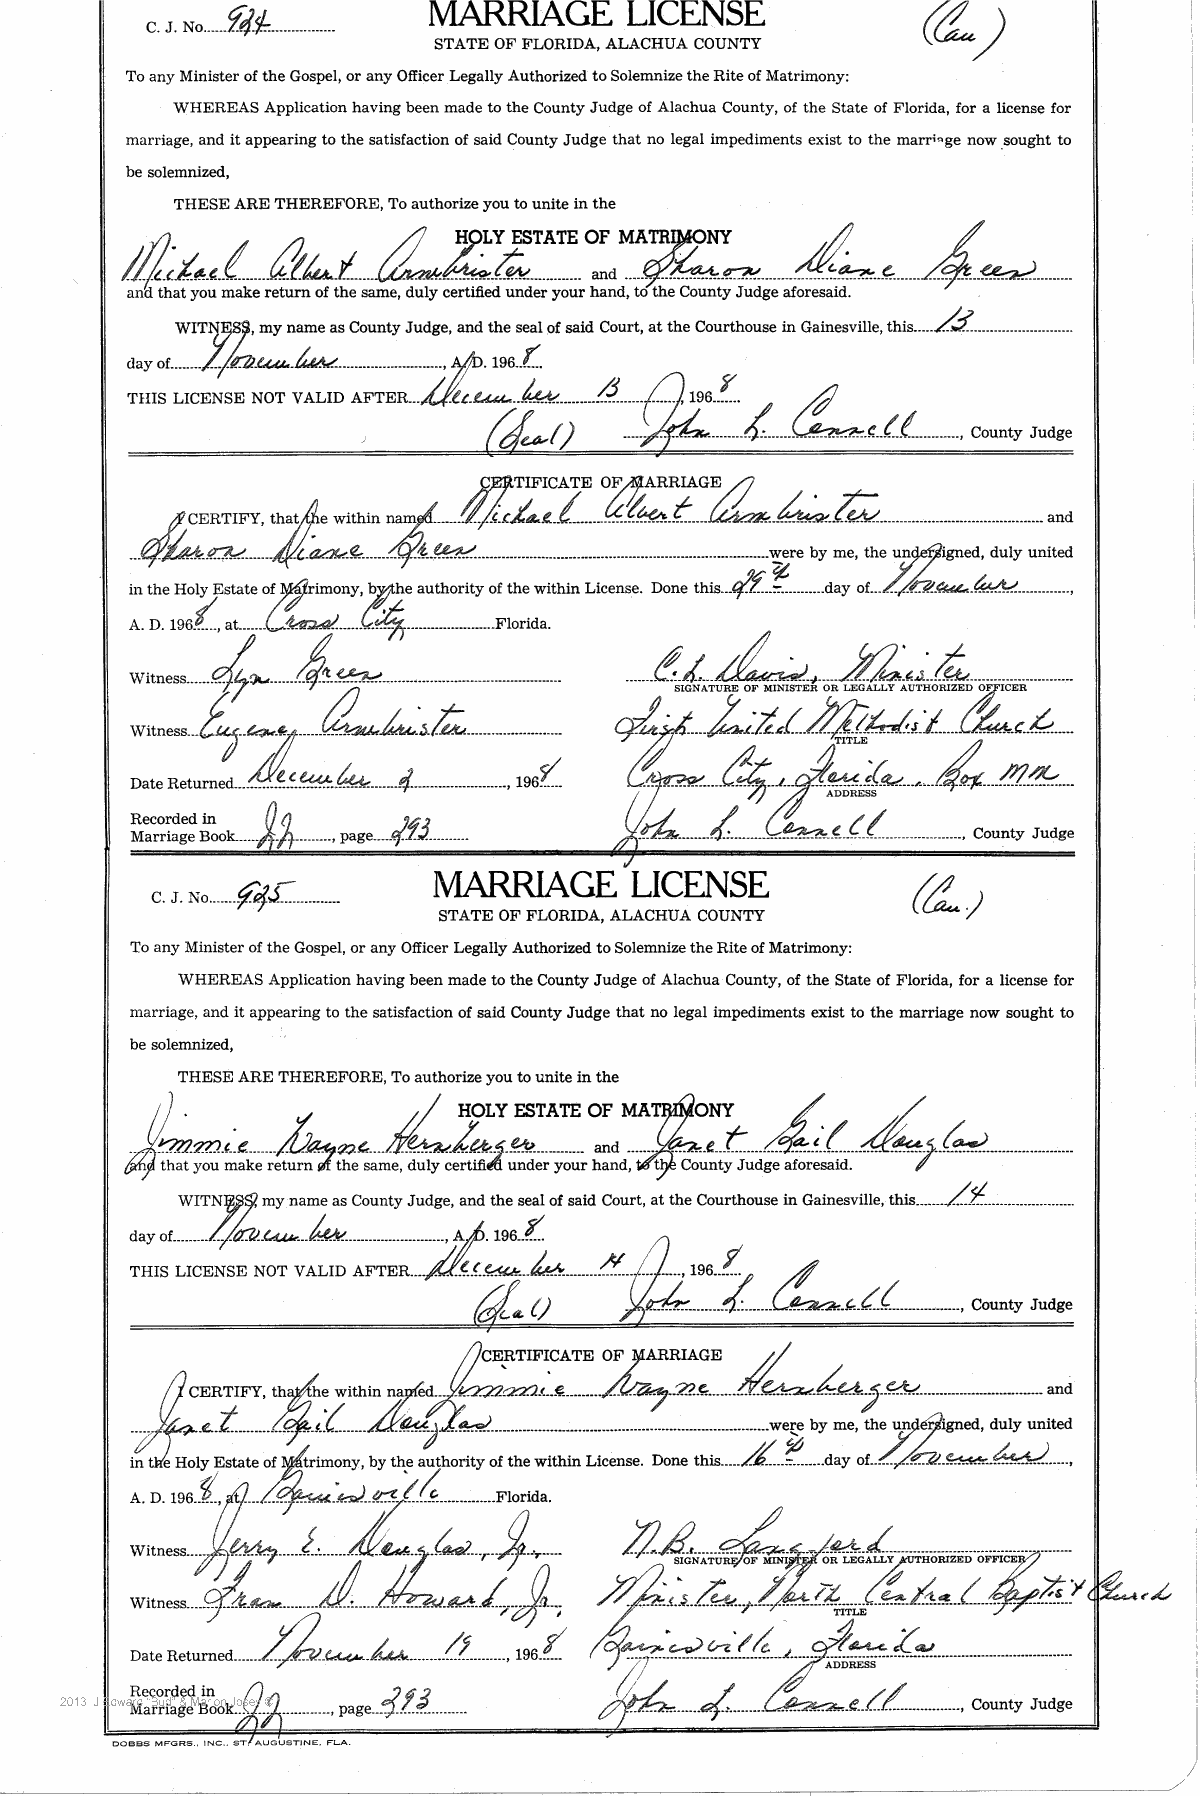 C. J. No. 924 MARRIAGE LICENSE (Cau)
STATE OF FLORIDA, ALACHUA COUNTY
To any Minister of the Gospel, or any Officer Legally Authorized to Solemnize the Rite of Matrimony:
WHEREAS Application having been made to the County Judge of Alachua County, of the State of Florida, for a license for
marriage, and it appearing to the satisfaction of said County Judge that no legal impediments exist to the marriage now sought to
be solemnized,
THESE ARE THEREFORE, To authorize you to unite in the
HOLY ESTATE OF MATRIMONY
Michael Albert Armbrister and Sharon Diane Green
and that you make return of the same, duly certified under your hand, to the County Judge aforesaid.
WITNESS, my name as County Judge, and the seal of said Court, at the Courthouse in Gainesville, this 13
day of November, A. D. 1968.
THIS LICENSE NOT VALID AFTER December 13, 1968
(Seal) John L. Connell, County Judge
CERTIFICATE OF MARRIAGE
I CERTIFY, that the within named Michael Albert Armbrister and
Sharon Diane Green were by me, the undersigned, duly united
in the Holy Estate of Matrimony, by the authority of the within License. Done this 29th day of November,
A. D. 1968, at Cross City Florida.
Witness Lyn Green C. L. Davis, Minister
SIGNATURE OF MINISTER OR LEGALLY AUTHORIZED OFFICER
Witness Eugene Armbrister First United Methodist Church
TITLE
Date Returned December 2, 1968 Cross City, Florida. Box MM
ADDRESS
Recorded in
Marriage Book 22, page 293 John L. Connell, County Judge
C. J. No. 925 MARRIAGE LICENSE (Cau.)
STATE OF FLORIDA, ALACHUA COUNTY
To any Minister of the Gospel, or any Officer Legally Authorized to Solemnize the Rite of Matrimony:
WHEREAS Application having been made to the County Judge of Alachua County, of the State of Florida, for a license for
marriage, and it appearing to the satisfaction of said County Judge that no legal impediments exist to the marriage now sought to
be solemnized,
THESE ARE THEREFORE, To authorize you to unite in the
HOLY ESTATE OF MATRIMONY
Jimmie Wayne Hernberger and Janet Gail Douglas
and that you make return of the same, duly certified under your hand, to the County Judge aforesaid.
WITNESS, my name as County Judge, and the seal of said Court, at the Courthouse in Gainesville, this 14
day of November, A. D. 1968.
THIS LICENSE NOT VALID AFTER December 14, 1968
(Seal) John L. Connell, County Judge
CERTIFICATE OF MARRIAGE
I CERTIFY, that the within named Jimmie Wayne Hernberger and
Janet Gail Douglas were by me, the undersigned, duly united
in the Holy Estate of Matrimony, by the authority of the within License. Done this 16th day of November,
A. D. 1968, at Gainesville Florida.
Witness Jerry E. Douglas, Jr., N. B. Langford
SIGNATURE OF MINISTER OR LEGALLY AUTHORIZED OFFICER
Witness Fram D. Howard, Jr. Minister, North Central Baptist Church
TITLE
Date Returned November 19, 1968 Gainesville, Florida
ADDRESS
Recorded in
Marriage Book 22, page 293 John L. Connell, County Judge
2013 J Edward "Bud" & Marion Josey ©
DOBBS MFGRS., INC., ST. AUGUSTINE, FLA.